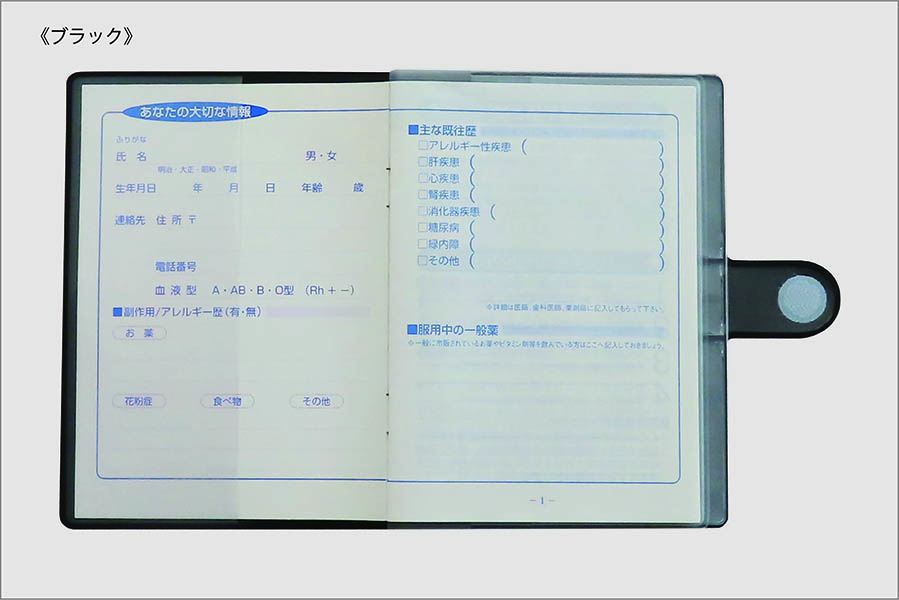 《ブラック》
あなたの大切な情報
ふりがな
氏 名 男・女
明治・大正・昭和・平成
生年月日 年 月 日 年齢 歳
連絡先 住 所 〒
電話番号
血 液 型 A・AB・B・O型 (Rh + −)
■副作用/アレルギー歴(有・無)
お 薬
花粉症 食べ物 その他
■主な既往歴
□アレルギー性疾患 ( )
□肝疾患 ( )
□心疾患 ( )
□腎疾患 ( )
□消化器疾患 ( )
□糖尿病 ( )
□緑内障 ( )
□その他 ( )
※詳細は医師、歯科医師、薬剤師に記入してもらって下さい。
■服用中の一般薬
※一般に市販されているお薬やビタミン剤等を飲んでいる方はここへ記入しておきましょう。
− 1 −